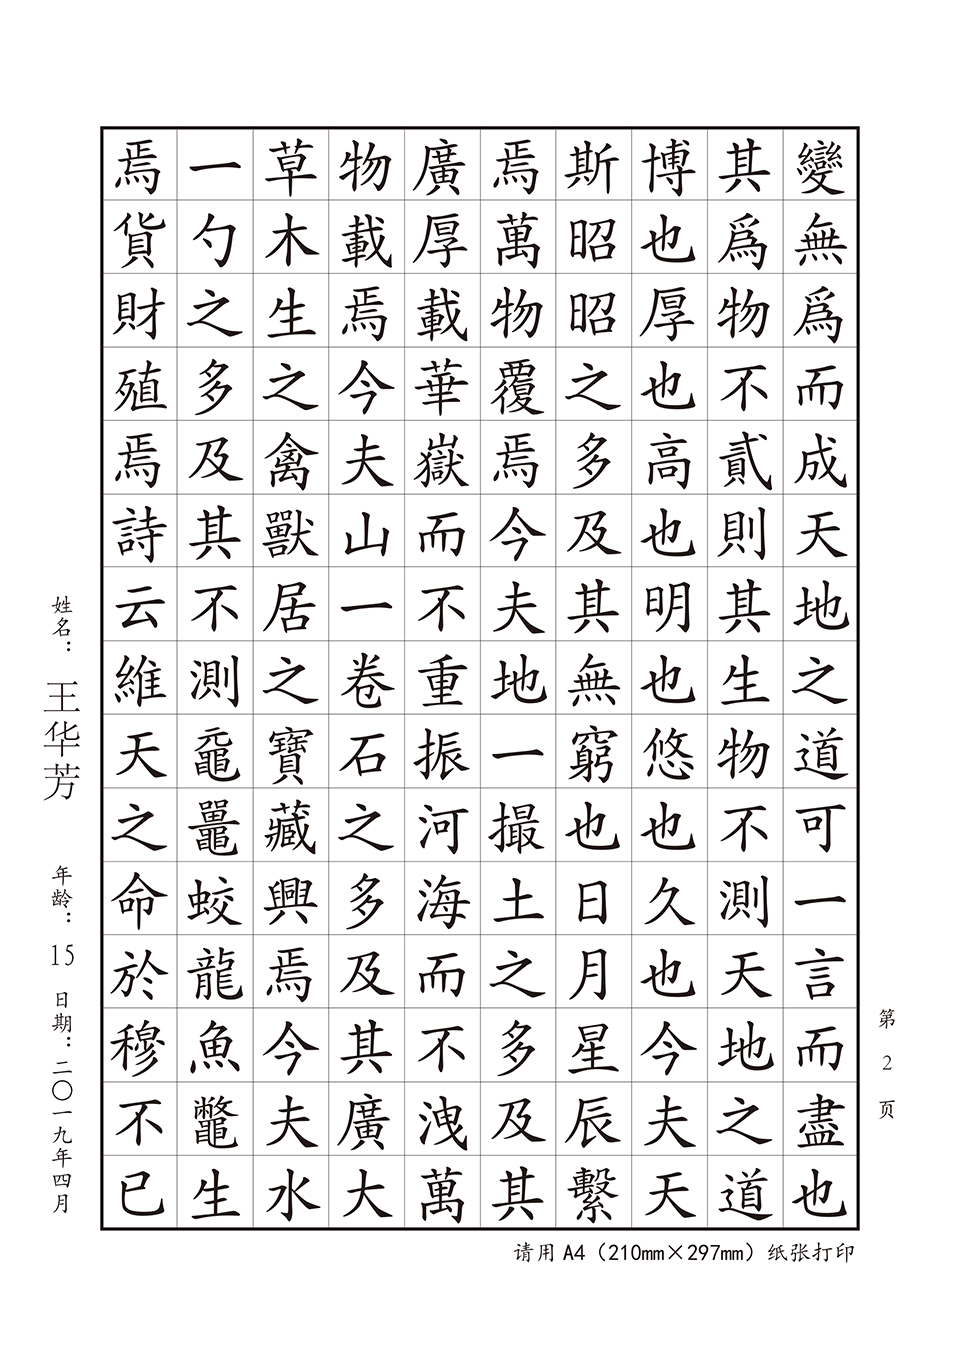 變無爲而成天地之道可一言而盡也
其爲物不貳則其生物不測天地之道
博也厚也高也明也悠也久也今夫天
斯昭昭之多及其無窮也日月星辰繫
焉萬物覆焉今夫地一撮土之多及其
廣厚載華嶽而不重振河海而不洩萬
物載焉今夫山一卷石之多及其廣大
草木生之禽獸居之寶藏興焉今夫水
一勺之多及其不測黿鼉蛟龍魚鼈生
焉貨財殖焉詩云維天之命於穆不已
第2页
姓名：王华芳 年龄：15 日期：二〇一九年四月
请用A4（210mm×297mm）纸张打印